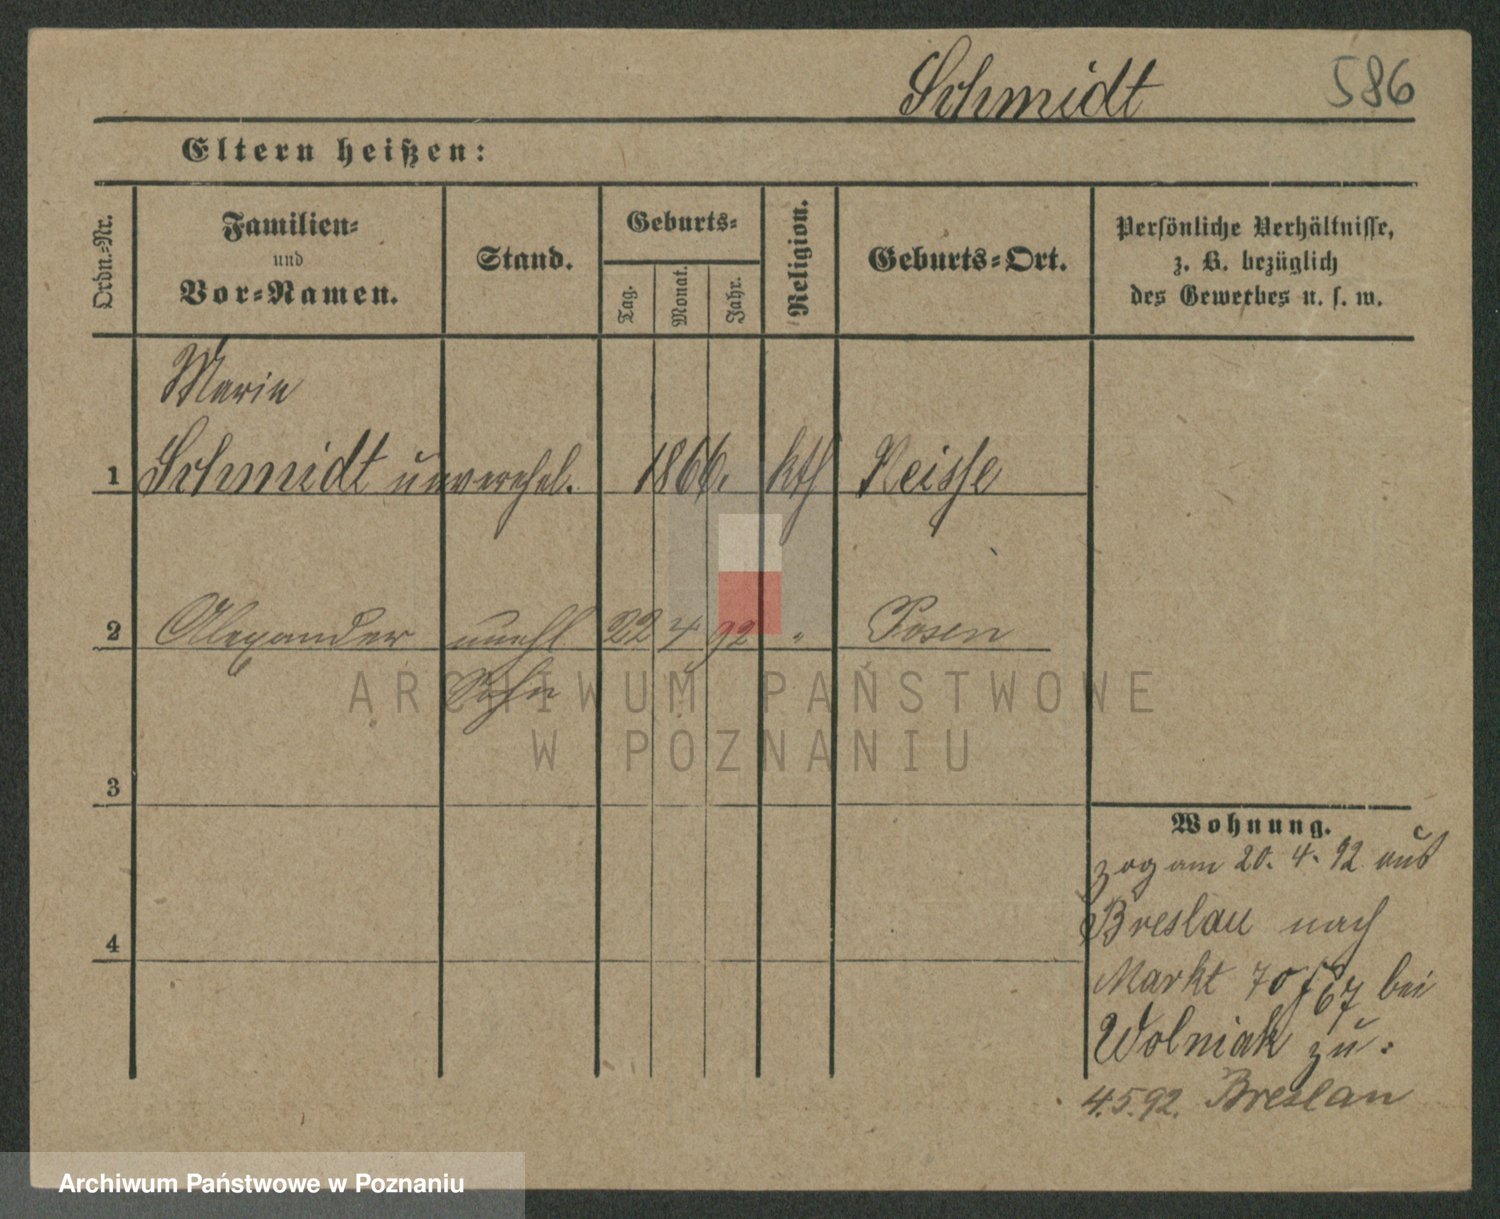 Schmidt 586
Eltern heißen:
Ordn.-Nr. Familien- und Vor-Namen. Stand. Geburts- Tag. Monat. Jahr. Religion. Geburts-Ort. Persönliche Verhältnisse, z. B. bezüglich des Gewerbes u. s. w.
Marie
1 Schmidt unverehel. 1866. kth Neisse
2 Alexander unehl 22 4 92 " Posen
Sohn
ARCHIWUM PAŃSTWOWE
W POZNANIU
3
4
Wohnung.
zog am 20. 4. 92 aus
Breslau nach
Markt 70/67 bei
Wolniak zu.
4.5.92. Breslau
Archiwum Państwowe w Poznaniu